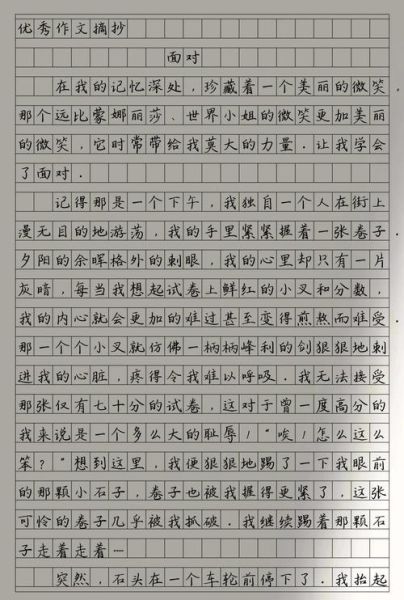 优秀作文摘抄
面对
在我的记忆深处，珍藏着一个美丽的微笑，
那个远比蒙娜丽莎、世界小姐的微笑更加美丽
的微笑，它时常带给我莫大的力量．让我学会
了面对．
记得那是一个下午，我独自一个人在街上
漫无目的地游荡，我的手里紧紧握着一张卷子．
夕阳的余晖格外的刺眼，我的心里却只有一片
灰暗，每当我想起试卷上鲜红的小叉和分数，
我的内心就会更加的难过甚至变得煎熬而难受．
那一个个小叉就仿佛一柄柄峰利的剑狠狠地刺
进我的心脏，疼得令我难以呼吸．我无法接受
那张仅有七十分的试卷，这对于曾一度高分的
我来说是一个多么大的耻辱！“唉！怎么这么
笨？”想到这里，我便狠狠地踢了一下我眼前
的那颗小石子，卷子也被我握得更紧了，这张
可怜的卷子几乎被我抓破．我继续踢着那颗石
子走着走着…
突然，石头在一个车轮前停下了．我抬起